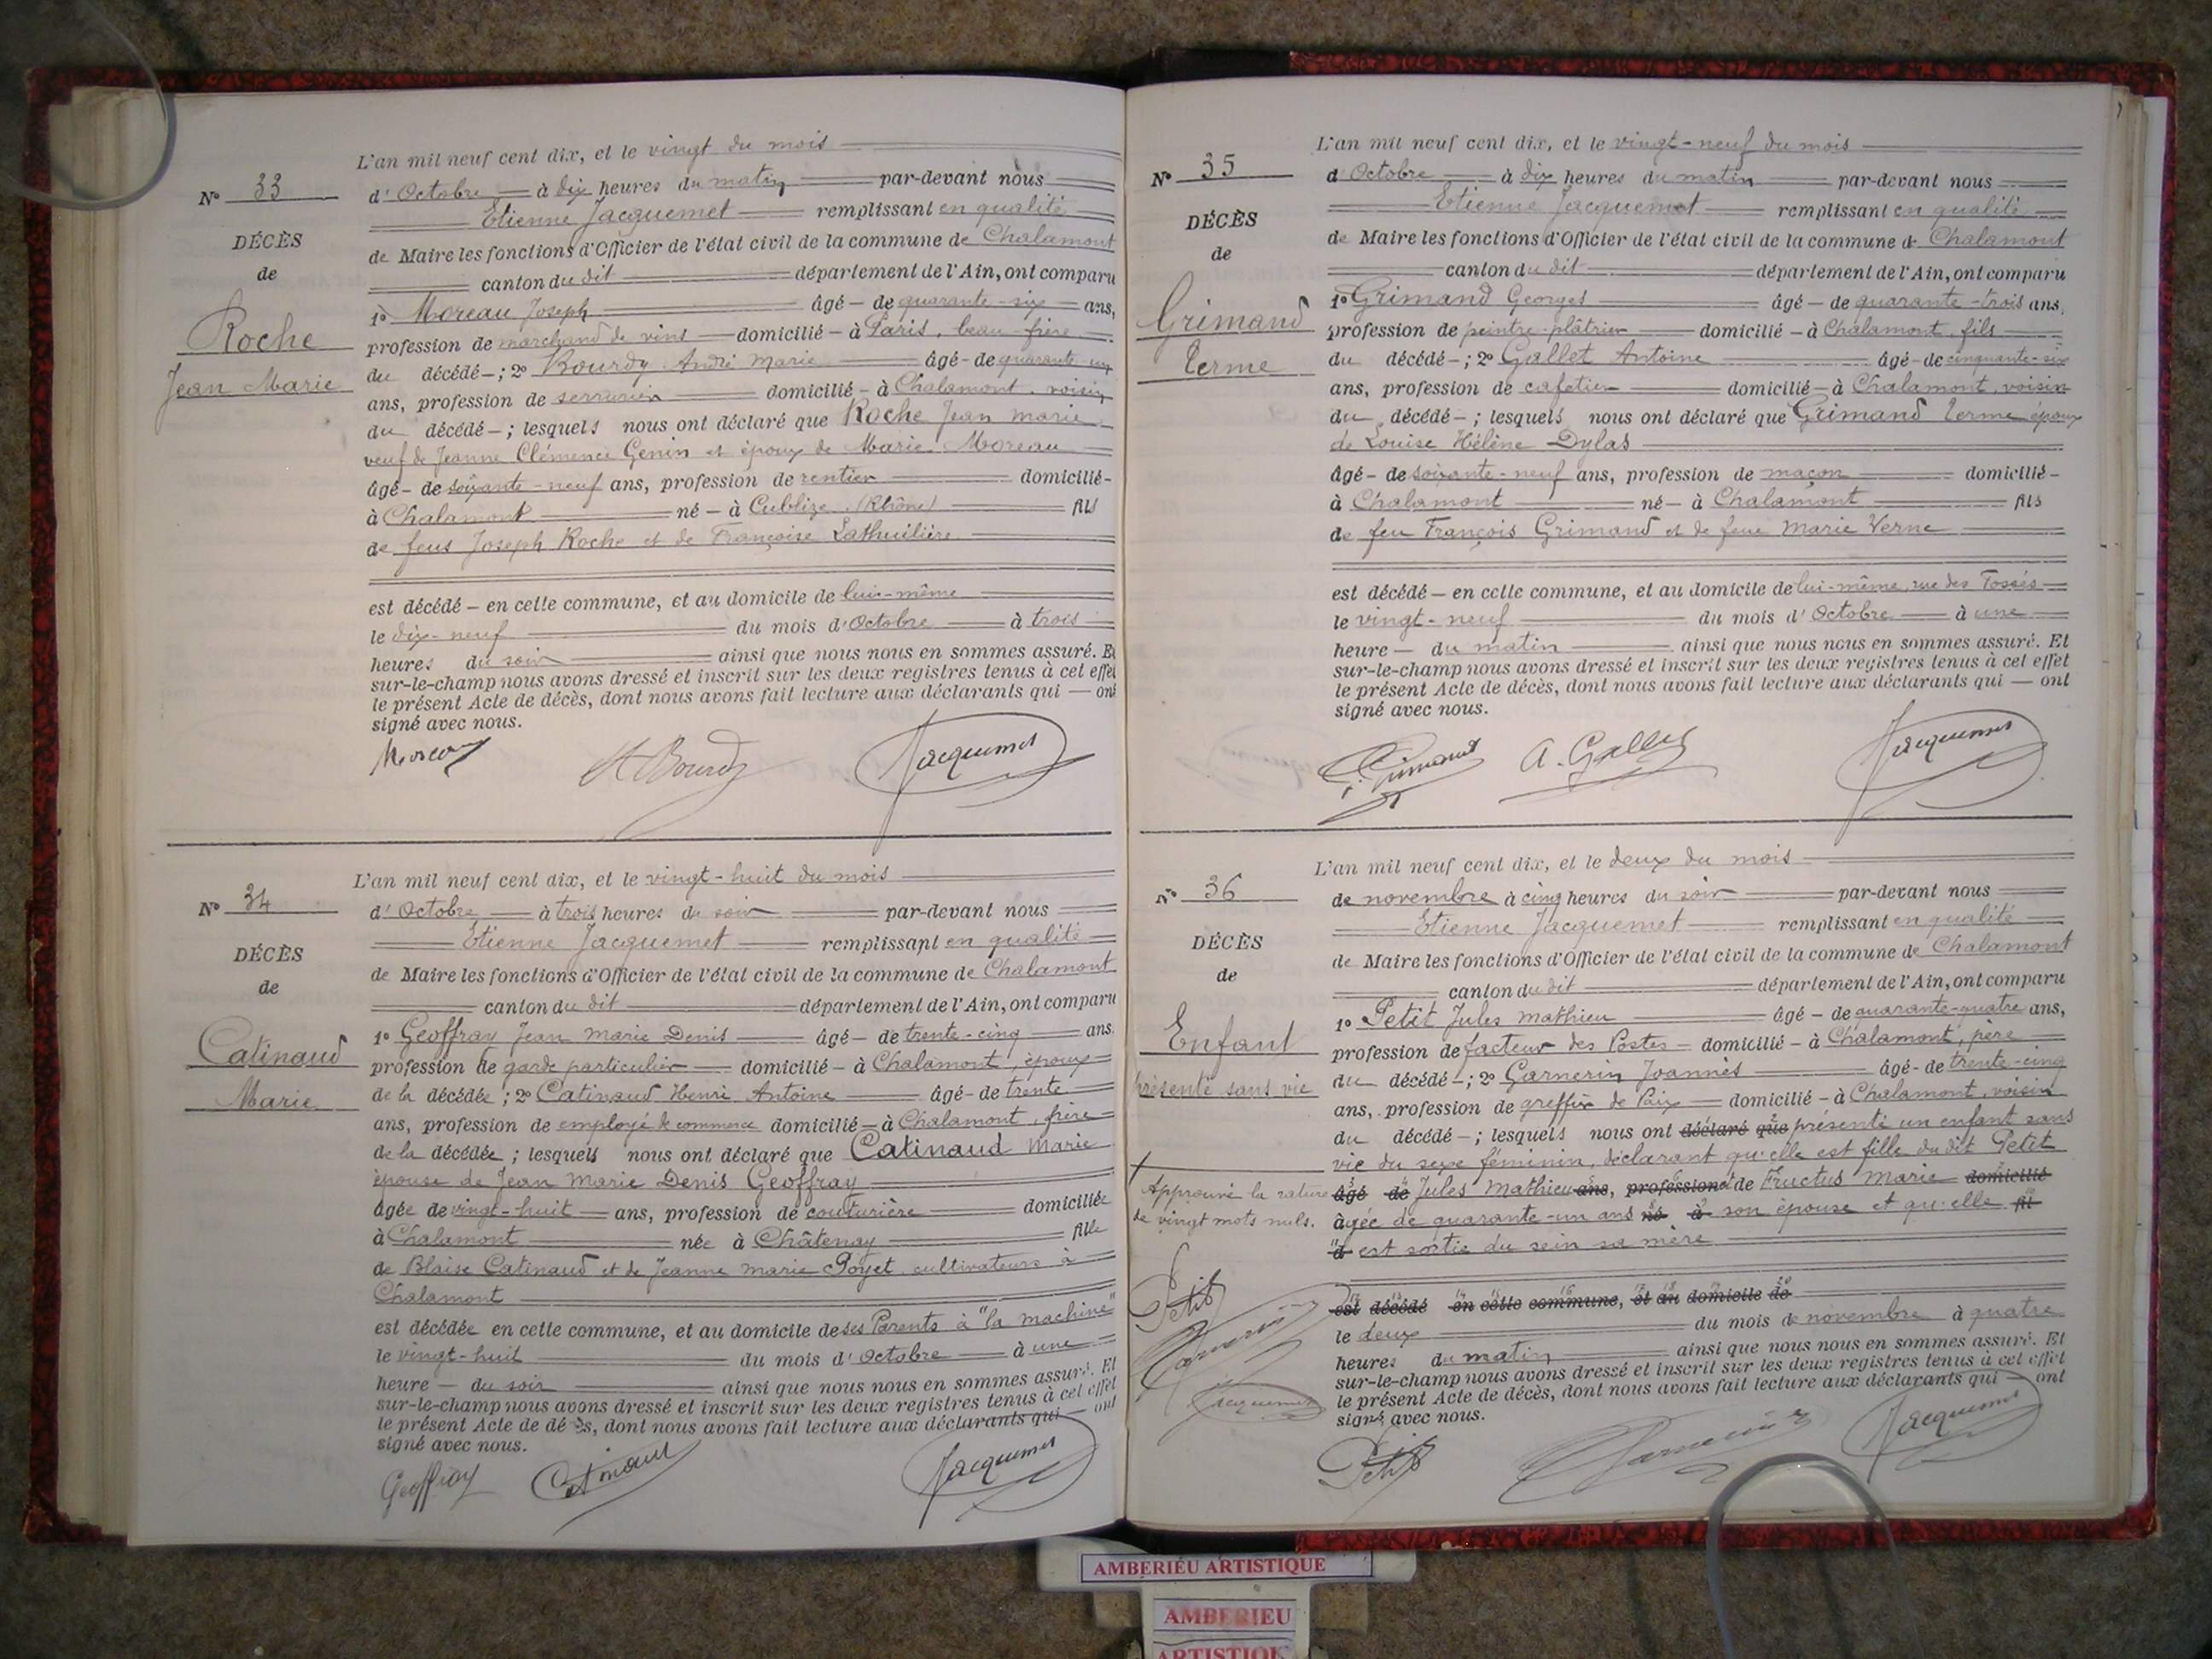 N° 33
DÉCÈS
de
Roche
Jean Marie
L'an mil neuf cent dix, et le vingt du mois
d'Octobre à dix heures du matin par-devant nous
Etienne Jacquemet remplissant en qualité
de Maire les fonctions d'Officier de l'état civil de la commune de Chalamont
canton du dit département de l'Ain, ont comparu
1° Moreau Joseph âgé de quarante-six ans,
profession de marchand de vins domicilié à Paris, beau-frère
du décédé ; 2° Bourdy André Marie âgé de quarante-un
ans, profession de serrurier domicilié à Chalamont, voisin
du décédé ; lesquels nous ont déclaré que Roche Jean Marie
veuf de Jeanne Clémence Genin et époux de Marie Moreau
âgé de soixante-neuf ans, profession de rentier domicilié
à Chalamont né à Cublize (Rhône) fils
de feus Joseph Roche et de Françoise Lathuilière
est décédé en cette commune, et au domicile de lui-même
le dix-neuf du mois d'Octobre à trois
heures du soir ainsi que nous nous en sommes assuré. Et
sur-le-champ nous avons dressé et inscrit sur les deux registres tenus à cet effet
le présent Acte de décès, dont nous avons fait lecture aux déclarants qui — ont
signé avec nous.
Moreau A Bourdy Jacquemet
N° 34
DÉCÈS
de
Catinaud
Marie
L'an mil neuf cent dix, et le vingt-huit du mois
d'Octobre à trois heures du soir par-devant nous
Etienne Jacquemet remplissant en qualité
de Maire les fonctions d'Officier de l'état civil de la commune de Chalamont
canton du dit département de l'Ain, ont comparu
1° Geoffray Jean Marie Denis âgé de trente-cinq ans
profession de garde particulier domicilié à Chalamont, époux
de la décédée ; 2° Catinaud Henri Antoine âgé de trente
ans, profession de employé de commerce domicilié à Chalamont, frère
de la décédée ; lesquels nous ont déclaré que Catinaud Marie
épouse de Jean Marie Denis Geoffray
âgée de vingt-huit ans, profession de couturière domiciliée
à Chalamont née à Châtenay fille
de Blaise Catinaud et de Jeanne Marie Poyet cultivateurs à
Chalamont
est décédée en cette commune, et au domicile de ses Parents à "la machine"
le vingt-huit du mois d'Octobre à une
heure du soir ainsi que nous nous en sommes assuré. Et
sur-le-champ nous avons dressé et inscrit sur les deux registres tenus à cet effet
le présent Acte de décès, dont nous avons fait lecture aux déclarants qui — ont
signé avec nous.
Geoffray Catinaud Jacquemet
N° 35
DÉCÈS
de
Grimand
Terme
L'an mil neuf cent dix, et le vingt-neuf du mois
d'Octobre à dix heures du matin par-devant nous
Etienne Jacquemet remplissant en qualité
de Maire les fonctions d'Officier de l'état civil de la commune de Chalamont
canton du dit département de l'Ain, ont comparu
1° Grimand Georges âgé de quarante-trois ans,
profession de peintre-plâtrier domicilié à Chalamont, fils
du décédé ; 2° Gallet Antoine âgé de cinquante-six
ans, profession de cafetier domicilié à Chalamont, voisin
du décédé ; lesquels nous ont déclaré que Grimand Terme époux
de Louise Hélène Dylas
âgé de soixante-neuf ans, profession de maçon domicilié
à Chalamont né à Chalamont fils
de feu François Grimand et de feue Marie Verne
est décédé en cette commune, et au domicile de lui-même, rue des Fossés
le vingt-neuf du mois d'Octobre à une
heure du matin ainsi que nous nous en sommes assuré. Et
sur-le-champ nous avons dressé et inscrit sur les deux registres tenus à cet effet
le présent Acte de décès, dont nous avons fait lecture aux déclarants qui — ont
signé avec nous.
G. Grimand A. Gallet Jacquemet
N° 36
DÉCÈS
de
Enfant
présenté sans vie
L'an mil neuf cent dix, et le deux du mois
de novembre à cinq heures du soir par-devant nous
Etienne Jacquemet remplissant en qualité
de Maire les fonctions d'Officier de l'état civil de la commune de Chalamont
canton du dit département de l'Ain, ont comparu
1° Petit Jules Mathieu âgé de quarante-quatre ans,
profession de facteur des Postes domicilié à Chalamont, père
du décédé ; 2° Garnerin Joannès âgé de trente-cinq
ans, profession de greffier de Paix domicilié à Chalamont, voisin
du décédé ; lesquels nous ont déclaré que présenté un enfant sans
vie du sexe féminin, déclarant qu'elle est fille du dit Petit
âgé de Jules Mathieu ans, profession et de Fructus Marie domicilié
âgée de quarante-un ans né à son épouse et qu'elle fil
d est sortie du sein sa mère
est décédé en cette commune, et au domicile de
le deux du mois de novembre à quatre
heures du matin ainsi que nous nous en sommes assuré. Et
sur-le-champ nous avons dressé et inscrit sur les deux registres tenus à cet effet
le présent Acte de décès, dont nous avons fait lecture aux déclarants qui — ont
signé avec nous.
Approuvé la rature
de vingt mots nuls.
Petit
Garnerin
Jacquemet
Petit Garnerin Jacquemet
AMBERIEU ARTISTIQUE
AMBERIEU
ARTISTIQUE